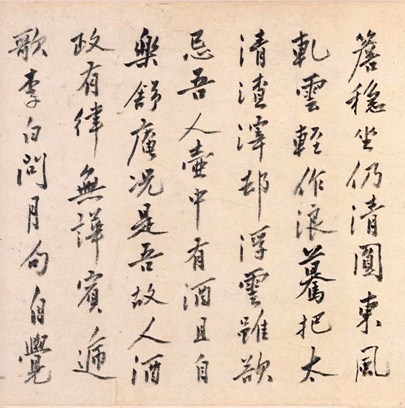 簷穏坐仍清圓東風
軋雲輕作浪驀把太
清渣滓却浮雲雖欲
忌吾人壺中有酒且自
樂舒庵况是吾故人酒
政有律無譁賓遞
歌李白問月句自覺